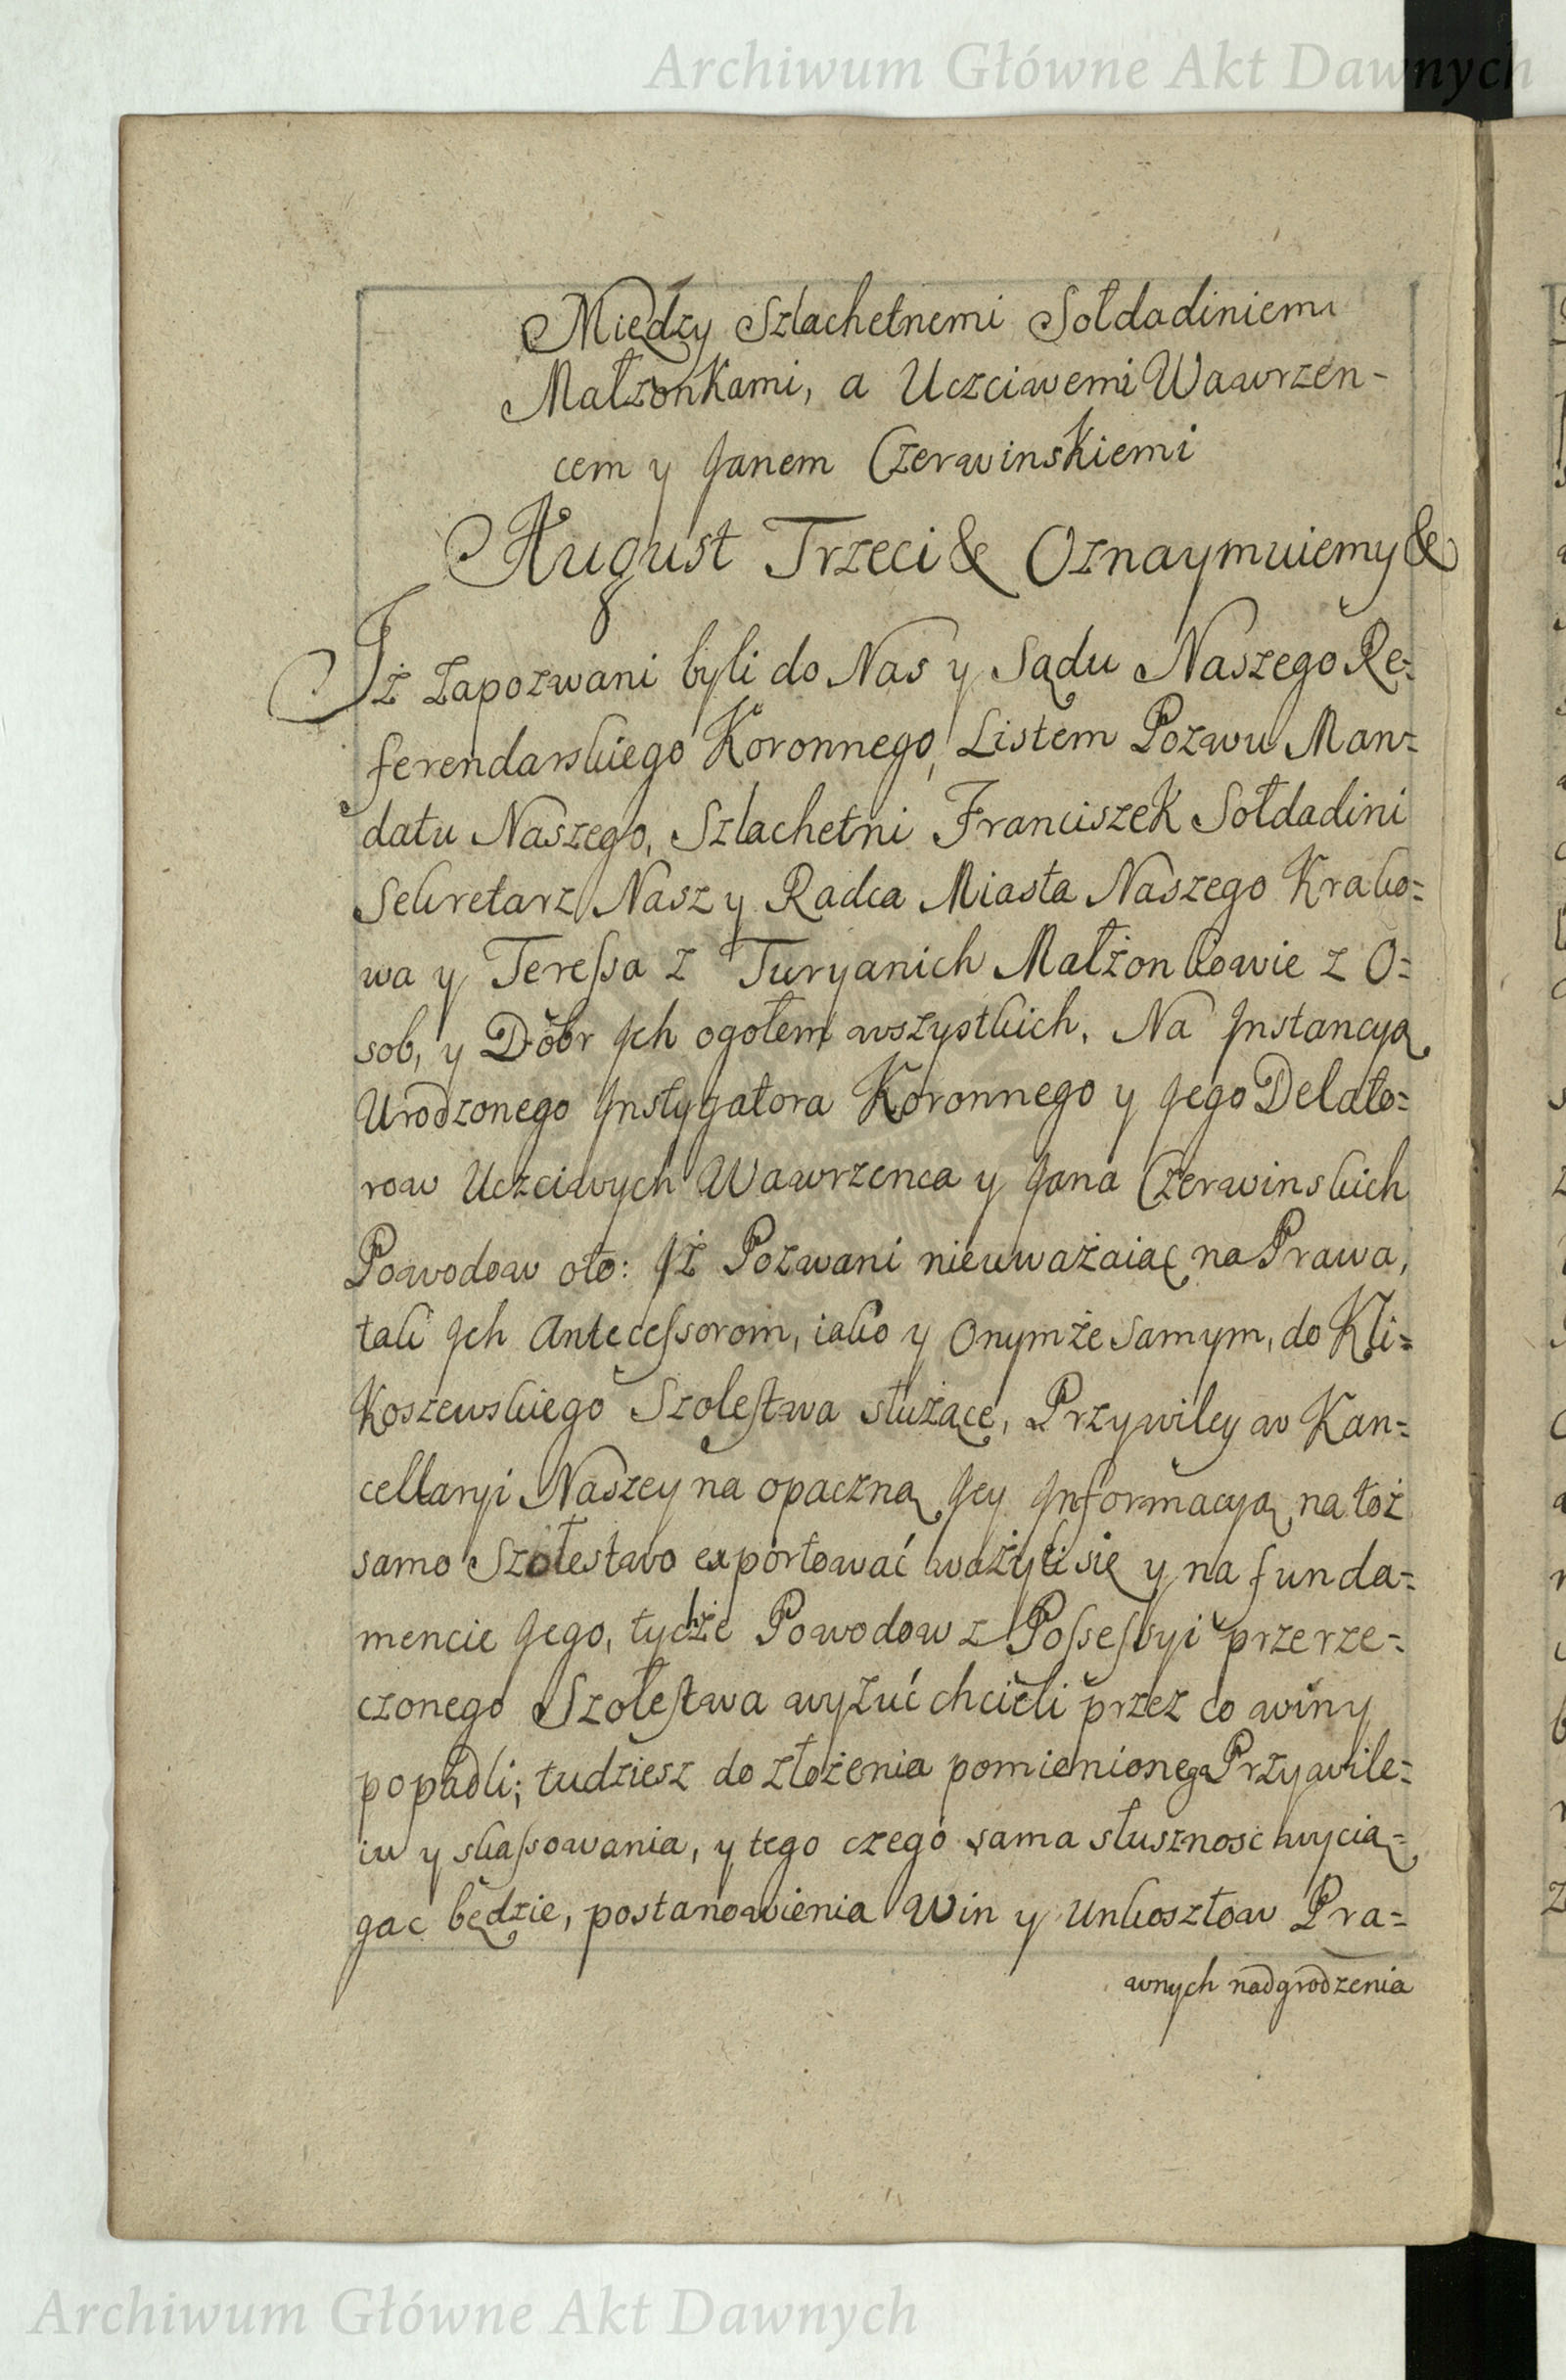 Archiwum Główne Akt Dawnych
Między Szlachetnemi Sołdadiniemi
Małzonkami, a Uczciwemi Wawrzen-
cem y Janem Czerwinskiemi
August Trzeci & Oznaymuiemy &
Iż zapozwani byli do Nas y Sądu Naszego Re=
ferendarskiego Koronnego, Listem Pozwu Man=
datu Naszego, Szlachetni Franciszek Sołdadini
Sekretarz Nasz y Radca Miasta Naszego Krako=
wa y Teressa z Turyanich Małżonkowie z O=
sob, y Dobr Jch ogołem wszystkich. Na Jnstancyą
Urodzonego Jnstygatora Koronnego y Jego Delato=
row Uczciwych Wawrzenca y Jana Czerwinskich
Powodow oto: Jż Pozwani nieuważaiąc na Prawa,
tak Jch Antecessorom, iako y Onymże samym, do Kli=
Koszewskiego Szolestwa służące, Przywiley w Kan=
cellaryi Naszey na opaczną Jey Jnformacyą na toż
samo Szołestwo exportować ważyli się y na funda=
mencie Jego, tychże Powodow z Possessyi przerze=
czonego Szołestwa wyzuć chcieli przez co winy
popadli; tudziesz do złożenia pomienionego Przywile=
iu y skassowania, y tego czego sama słusznosc wycią=
gac będzie, postanowienia Win y Unkosztow Pra=
wnych nadgrodzenia
Archiwum Główne Akt Dawnych